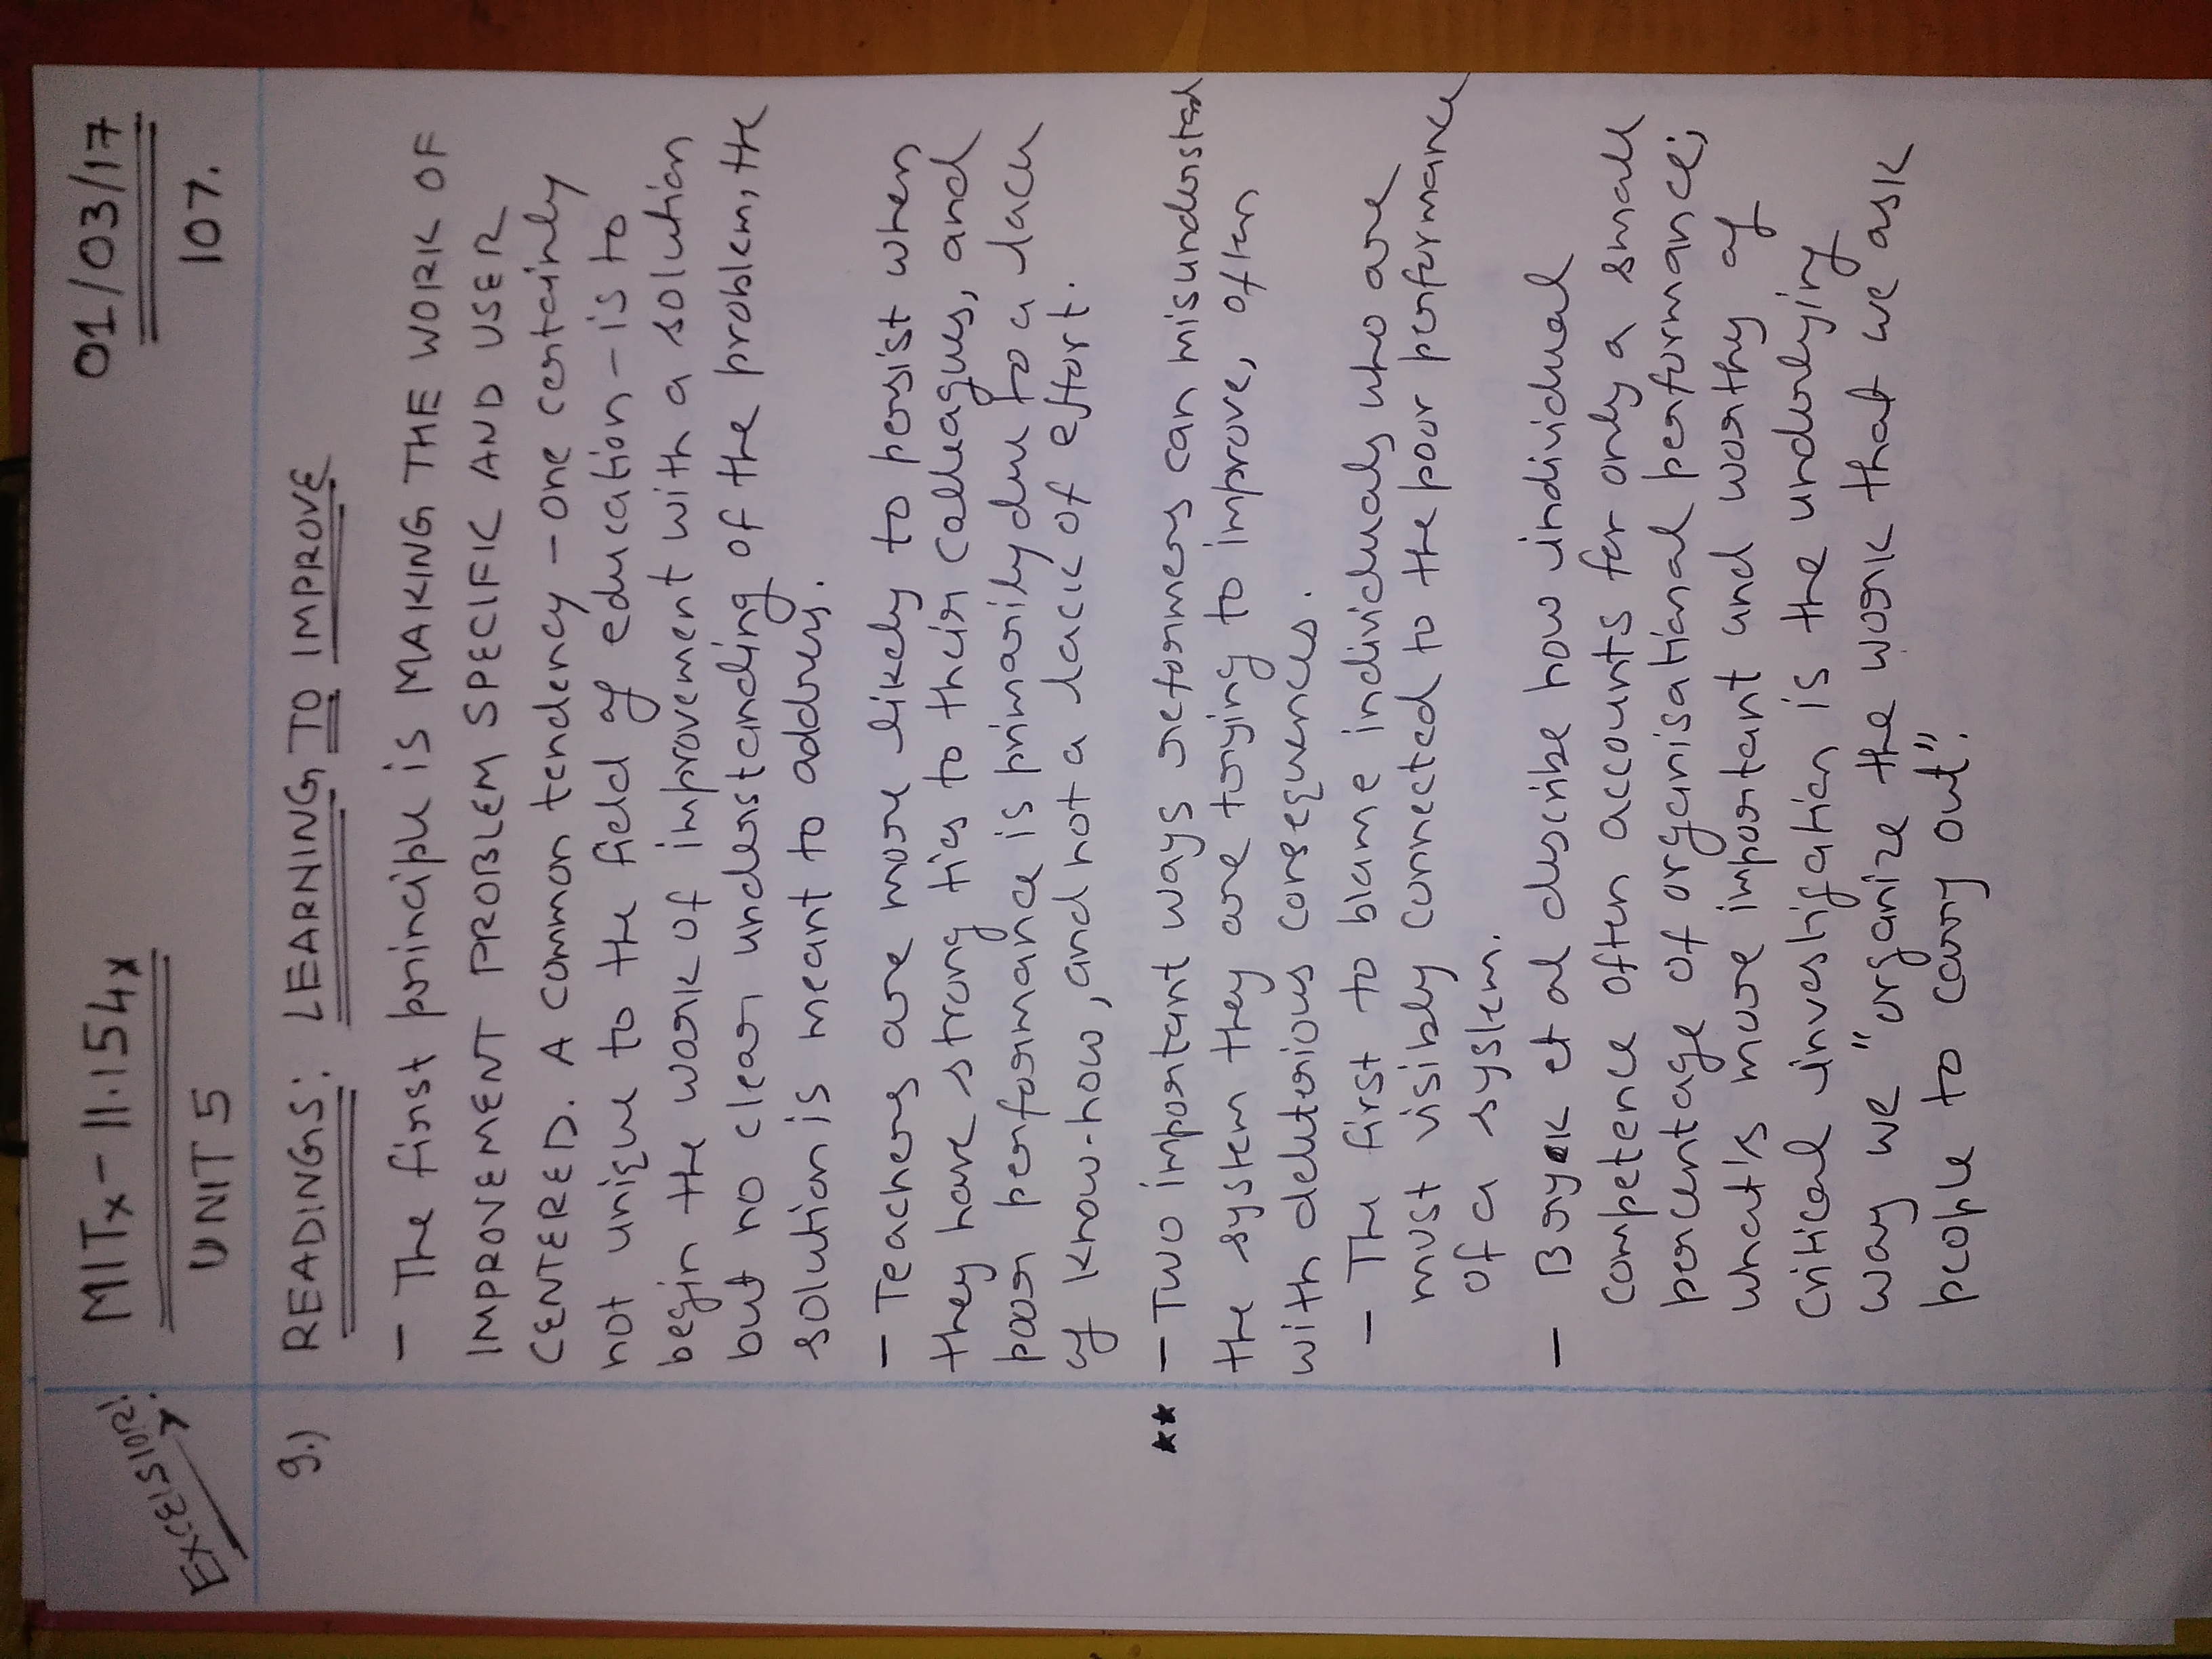 EXCELSIOR!
MITx - 11.154x
01/03/17
UNIT 5
107.
9.) READINGS: LEARNING TO IMPROVE
- The first principle is MAKING THE WORK OF
IMPROVEMENT PROBLEM SPECIFIC AND USER
CENTERED. A common tendency - one certainly
not unique to the field of education - is to
begin the work of improvement with a solution
but no clear understanding of the problem, the
solution is meant to address.
- Teachers are more likely to persist when
they have strong ties to their colleagues, and
poor performance is primarily due to a lack
of know-how, and not a lack of effort.
★★ - Two important ways reformers can misunderstand
the system they are trying to improve, often
with deleterious consequences.
- The first to blame individuals who are
most visibly connected to the poor performance
of a system.
- Bryk et al describe how individual
competence often accounts for only a small
percentage of organisational performance;
what's more important and worthy of
critical investigation is the underlying
way we "organize the work that we ask
people to carry out".